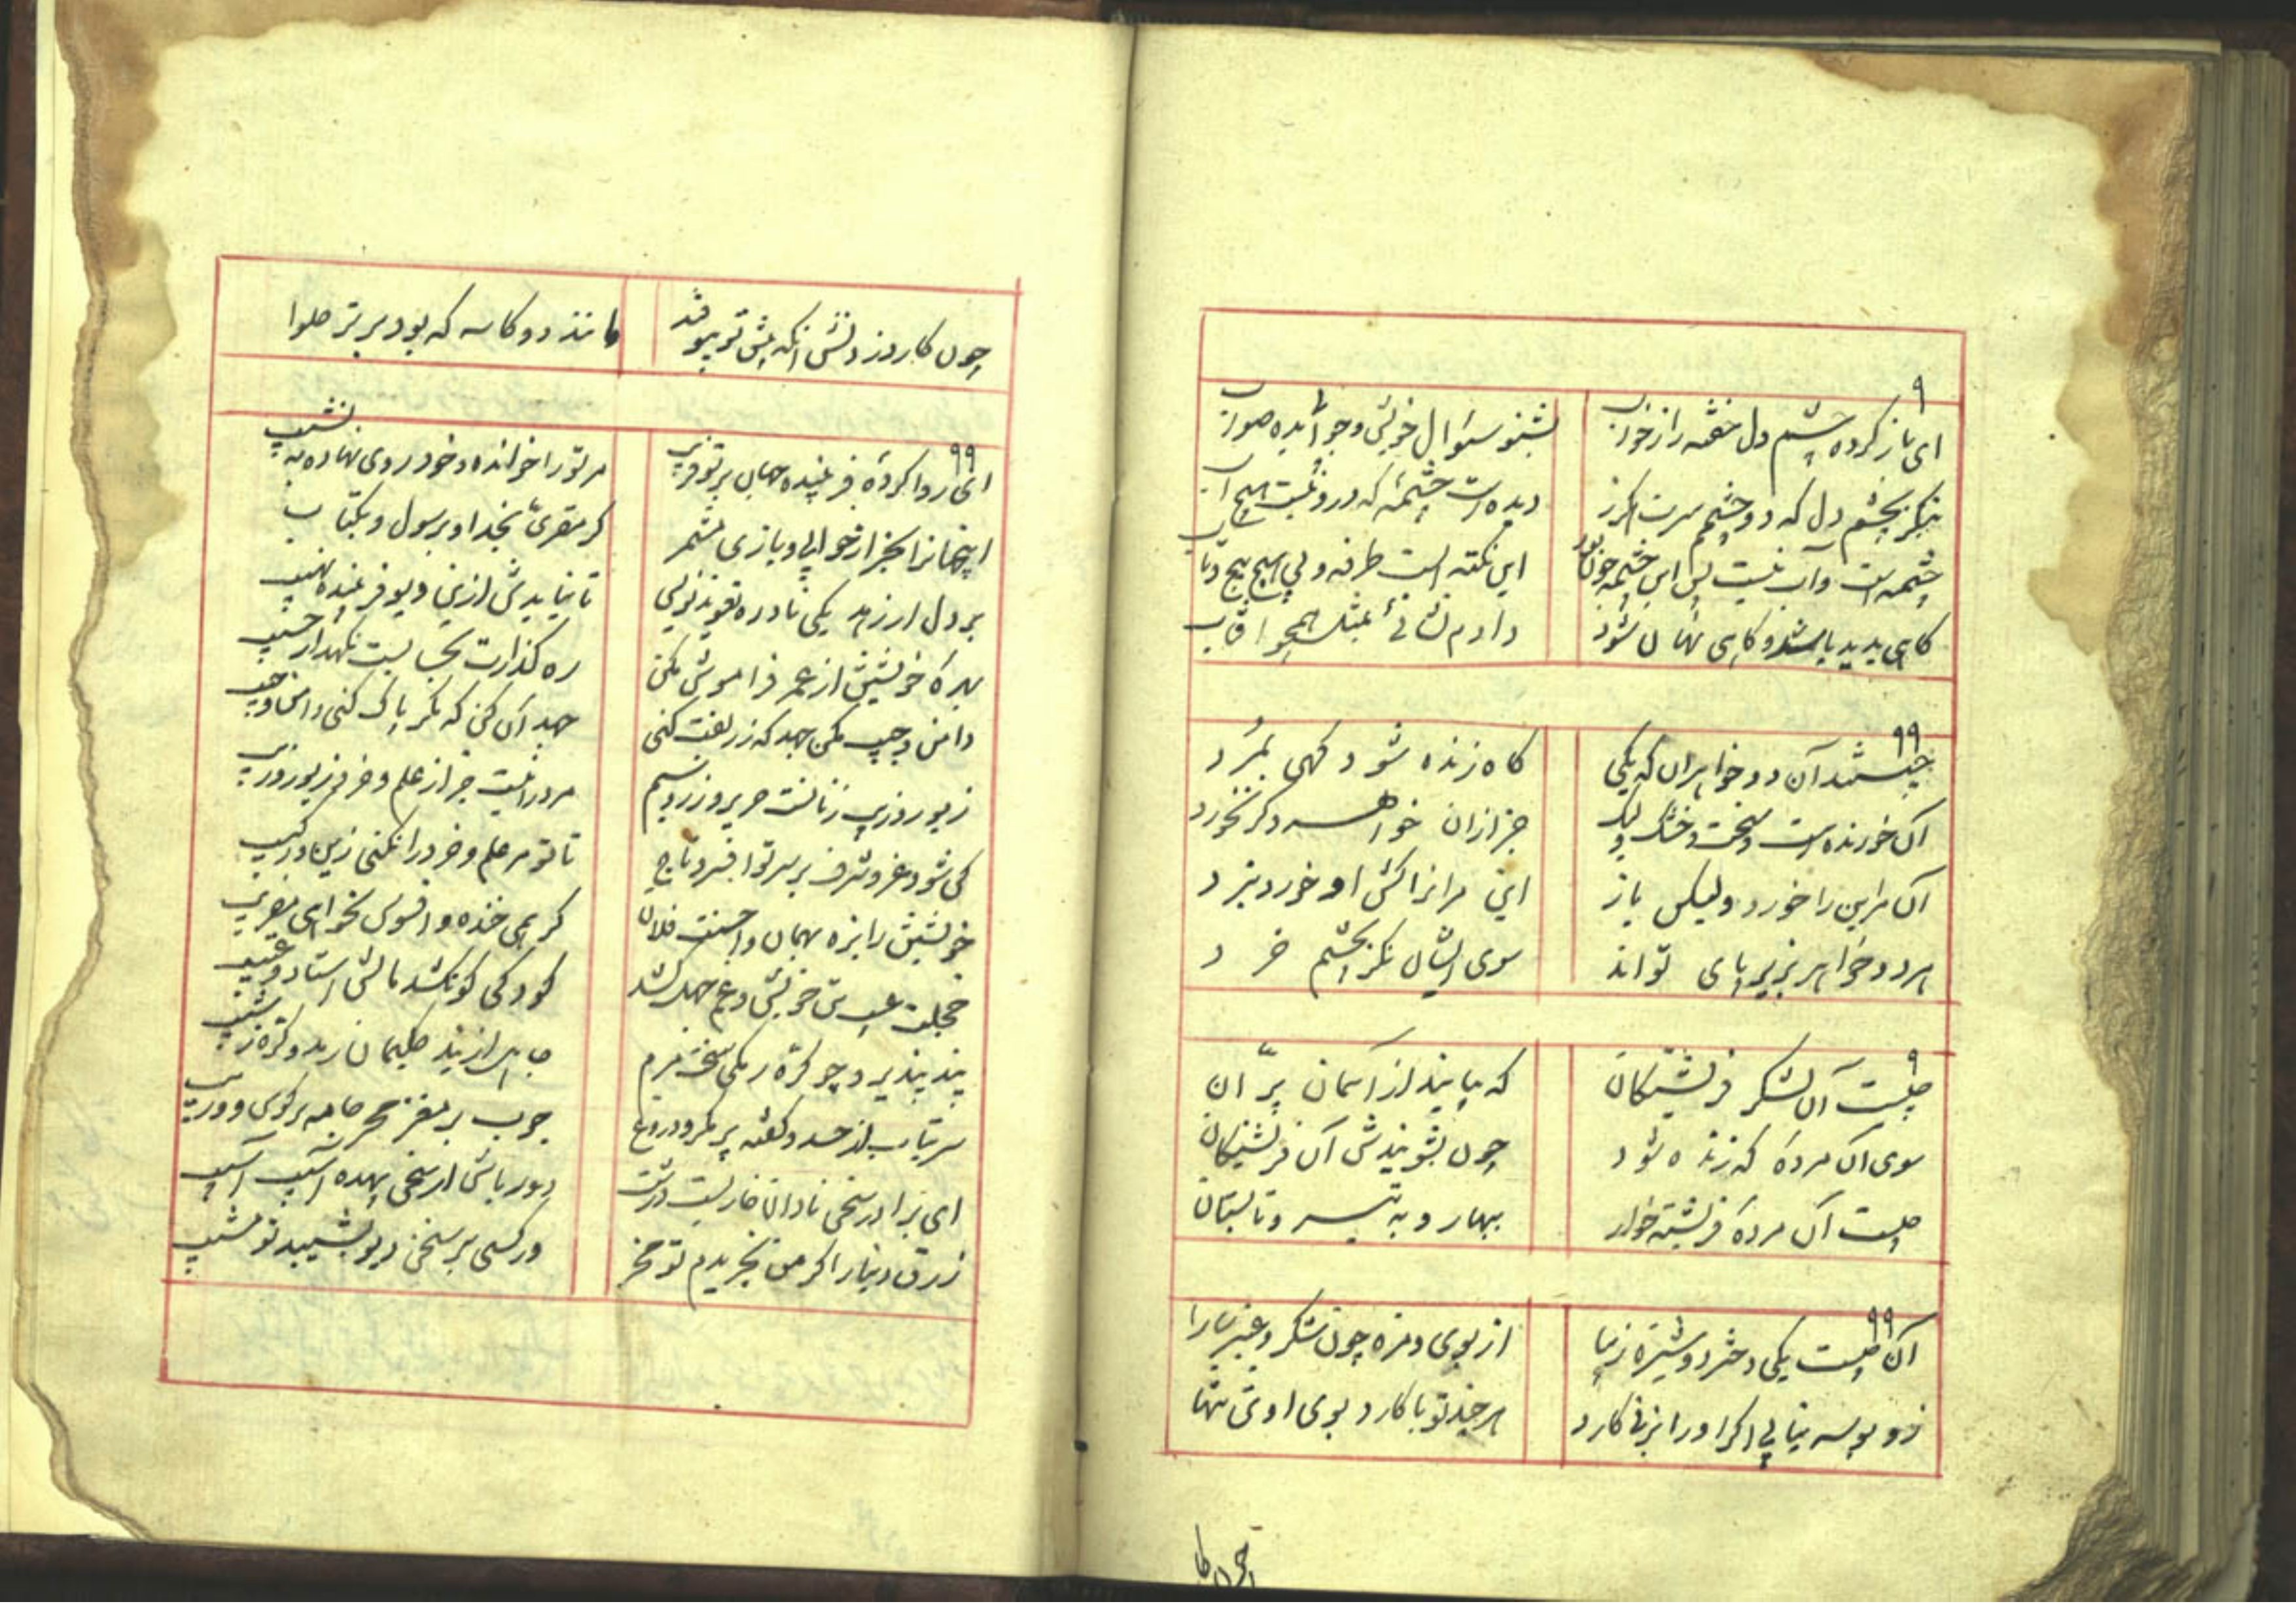 ای باز کرده چشم دل خفته را ز خواب بشنو سؤال خویش و جوابی بده صواب
بنگر بچشم دل که دو چشم سرت اکر ز دیده است چشمهٔ که درو نیست هیچ آب
چشمه است و آب نیست پس این چشمه چون بود این نکته است طرفه و بی هیچ پیچ و تاب
کاهی پدید باشد و کاهی نهان شود دادم نشانئ بمثل همچو آفتاب
چیستند آن دو خواهران که یکی کاه زنده شود کهی بمُرد
آن خورنده است و سخت و خشک ولیک جز ازان خواهر دکر نخورد
آن مراین را خورد ولیکن باز این مرانرا کش او خورد ببرد
هر دو خواهر بزیر پای تواند سوی ایشان نکر بچشم خرد
چیست آن لشکر فریشتکان که بیایند از آسمان پرّان
سوی آن مردهٔ که زنده شود چون بشویندش آن فریشتکان
چیست آن مردهٔ فریشته خوار ببهار و به تیر و تابستان
آن چیست یکی دختر دوشیزهٔ زیبا از بوی و مزه چون شکر و عنبر سارا
زو بوسه نیابی اکر او را بزنی کارد هر چند تو با کارد بوی او تن تنها
چون کا
چون کارد زدیش آنکه پیش تو بیوفتد مانند دو کاسه که بود پر ز حلوا
ای روا کردهٔ فریبنده جهان بر تو فریب مر تو را خوانده و خود روی نهاده به نشیب
این جهانرا بجز از خوابی و بازی مشمر کر مقری بخدا و برسول و بکتاب
بر دل از زهد یکی نادره تعویذ نویس تا نیایدش ازین دیو فریبنده نهیب
بهرهٔ خویشتن از عمر فراموش مکن ره کذارت بحسابست نکهدار حسیب
دامن و جیب مکن جهد که زربفت کنی جهد آن کن که مکر پاک کنی دامن و جیب
زیور و زیب زنانست حریر و زر و سیم مرد را نیست جز از علم و خرد زیور و زیب
کی شود عز و شرف بر سر تو افسر و تاج تا تو مر علم و خرد را نکنی زین و رکیب
خویشتن را بزه بهمان و احسنت فلان کر همی خنده و افسوس نخواهی مفریب
خجلت عیب تن خویش و غم جهل کشد کودکی کو نکشد مالش استاد و عتیب
پند بپذیر و چو کرّه رمکی سخت مرم جاهل از پند حکیمان رمد و کره ز شیب
سر بتاب از حسد و کفته پر مکر و دروغ چرب بر مغز مخر جامه پر کوی و وریب
ای برادر سخن نادان خاریست درشت دور باش از سخن بیهده آسیب آسیب
زرق دنیا را کر من بخریدم تو مخر ور کسی بر سخن دیو بشیبید تو مشیب